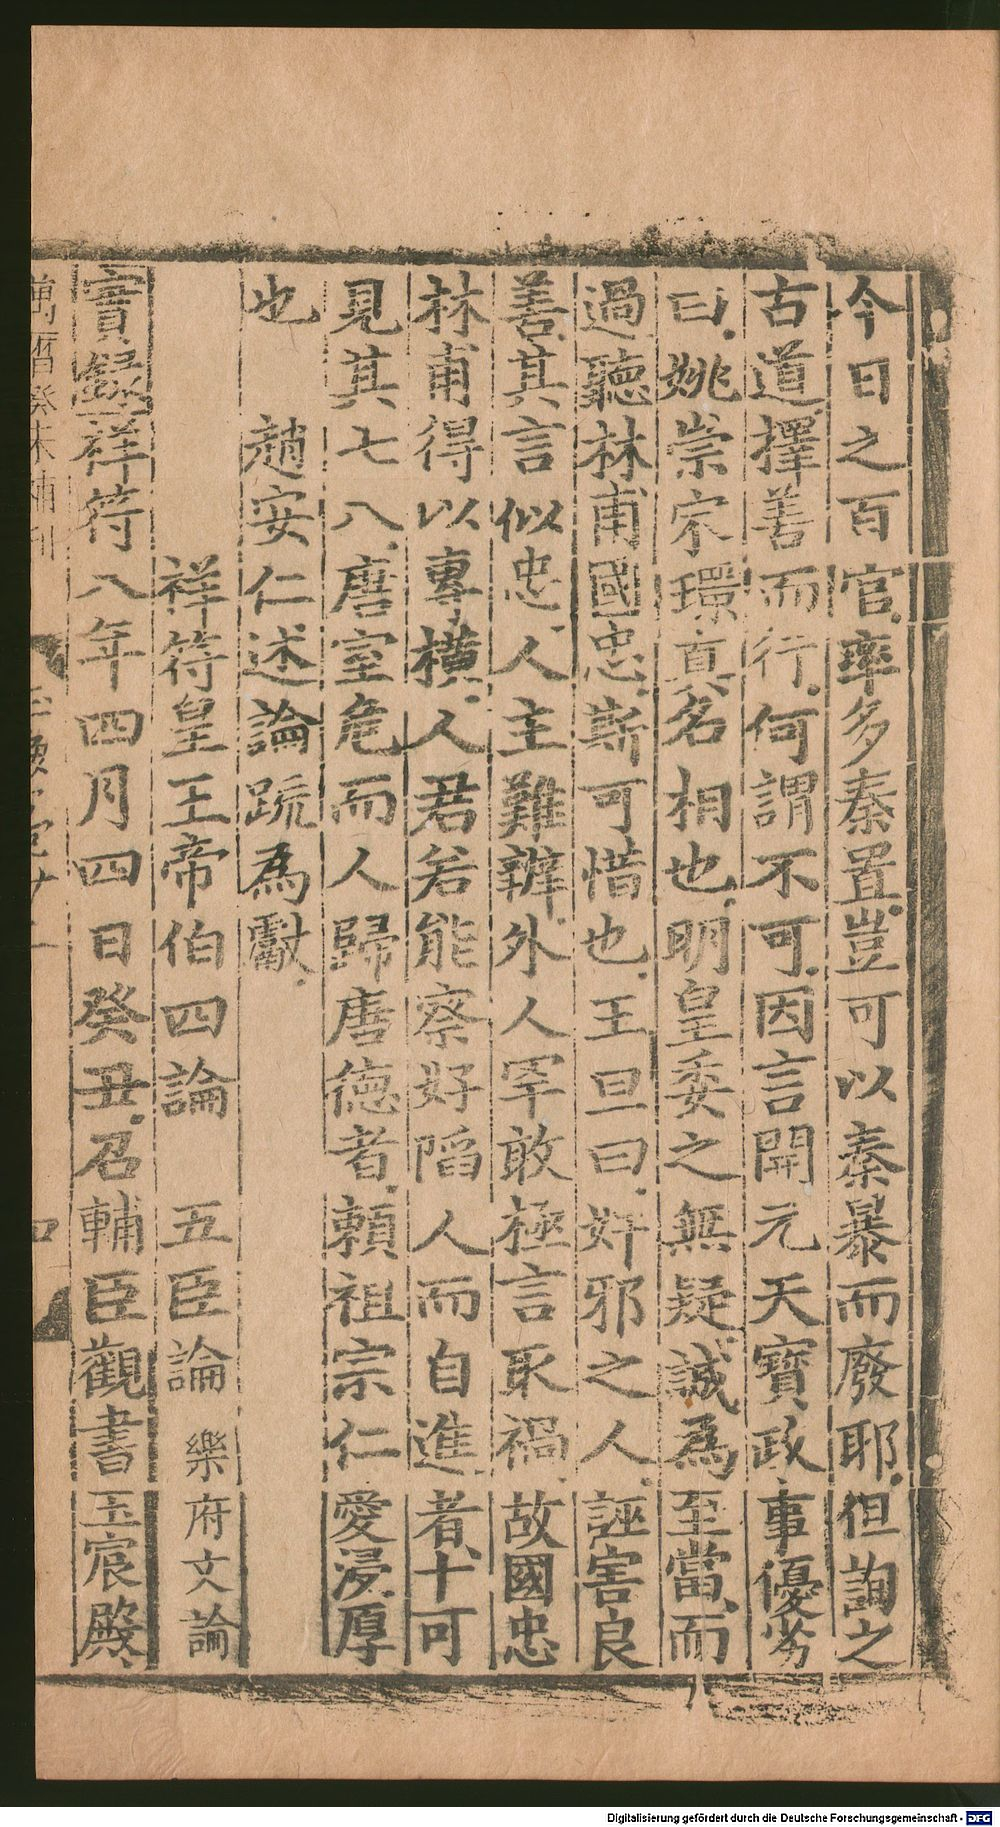 今日之百官率多秦置豈可以秦暴而廢耶但詢之
古道擇善而行何謂不可因言開元天寶政事優劣
曰姚崇宋環真名相也明皇委之無疑誠為至當而
過聽林甫國忠斯可惜也王旦曰奸邪之人誣害良
善其言似忠人主難辨外人罕敢極言取禍故國忠
林甫得以專橫人君若能察好陷人而自進者十可
見其七八唐室危而人歸唐德者賴祖宗仁愛浸厚
也
趙安仁述論疏為獻
祥符皇王帝伯四論 五臣論 樂府文論
實錄祥符八年四月四日癸丑召輔臣觀書玉宸殿
萬曆癸未補刊
四
Digitalisierung gefördert durch die Deutsche Forschungsgemeinschaft - DFG